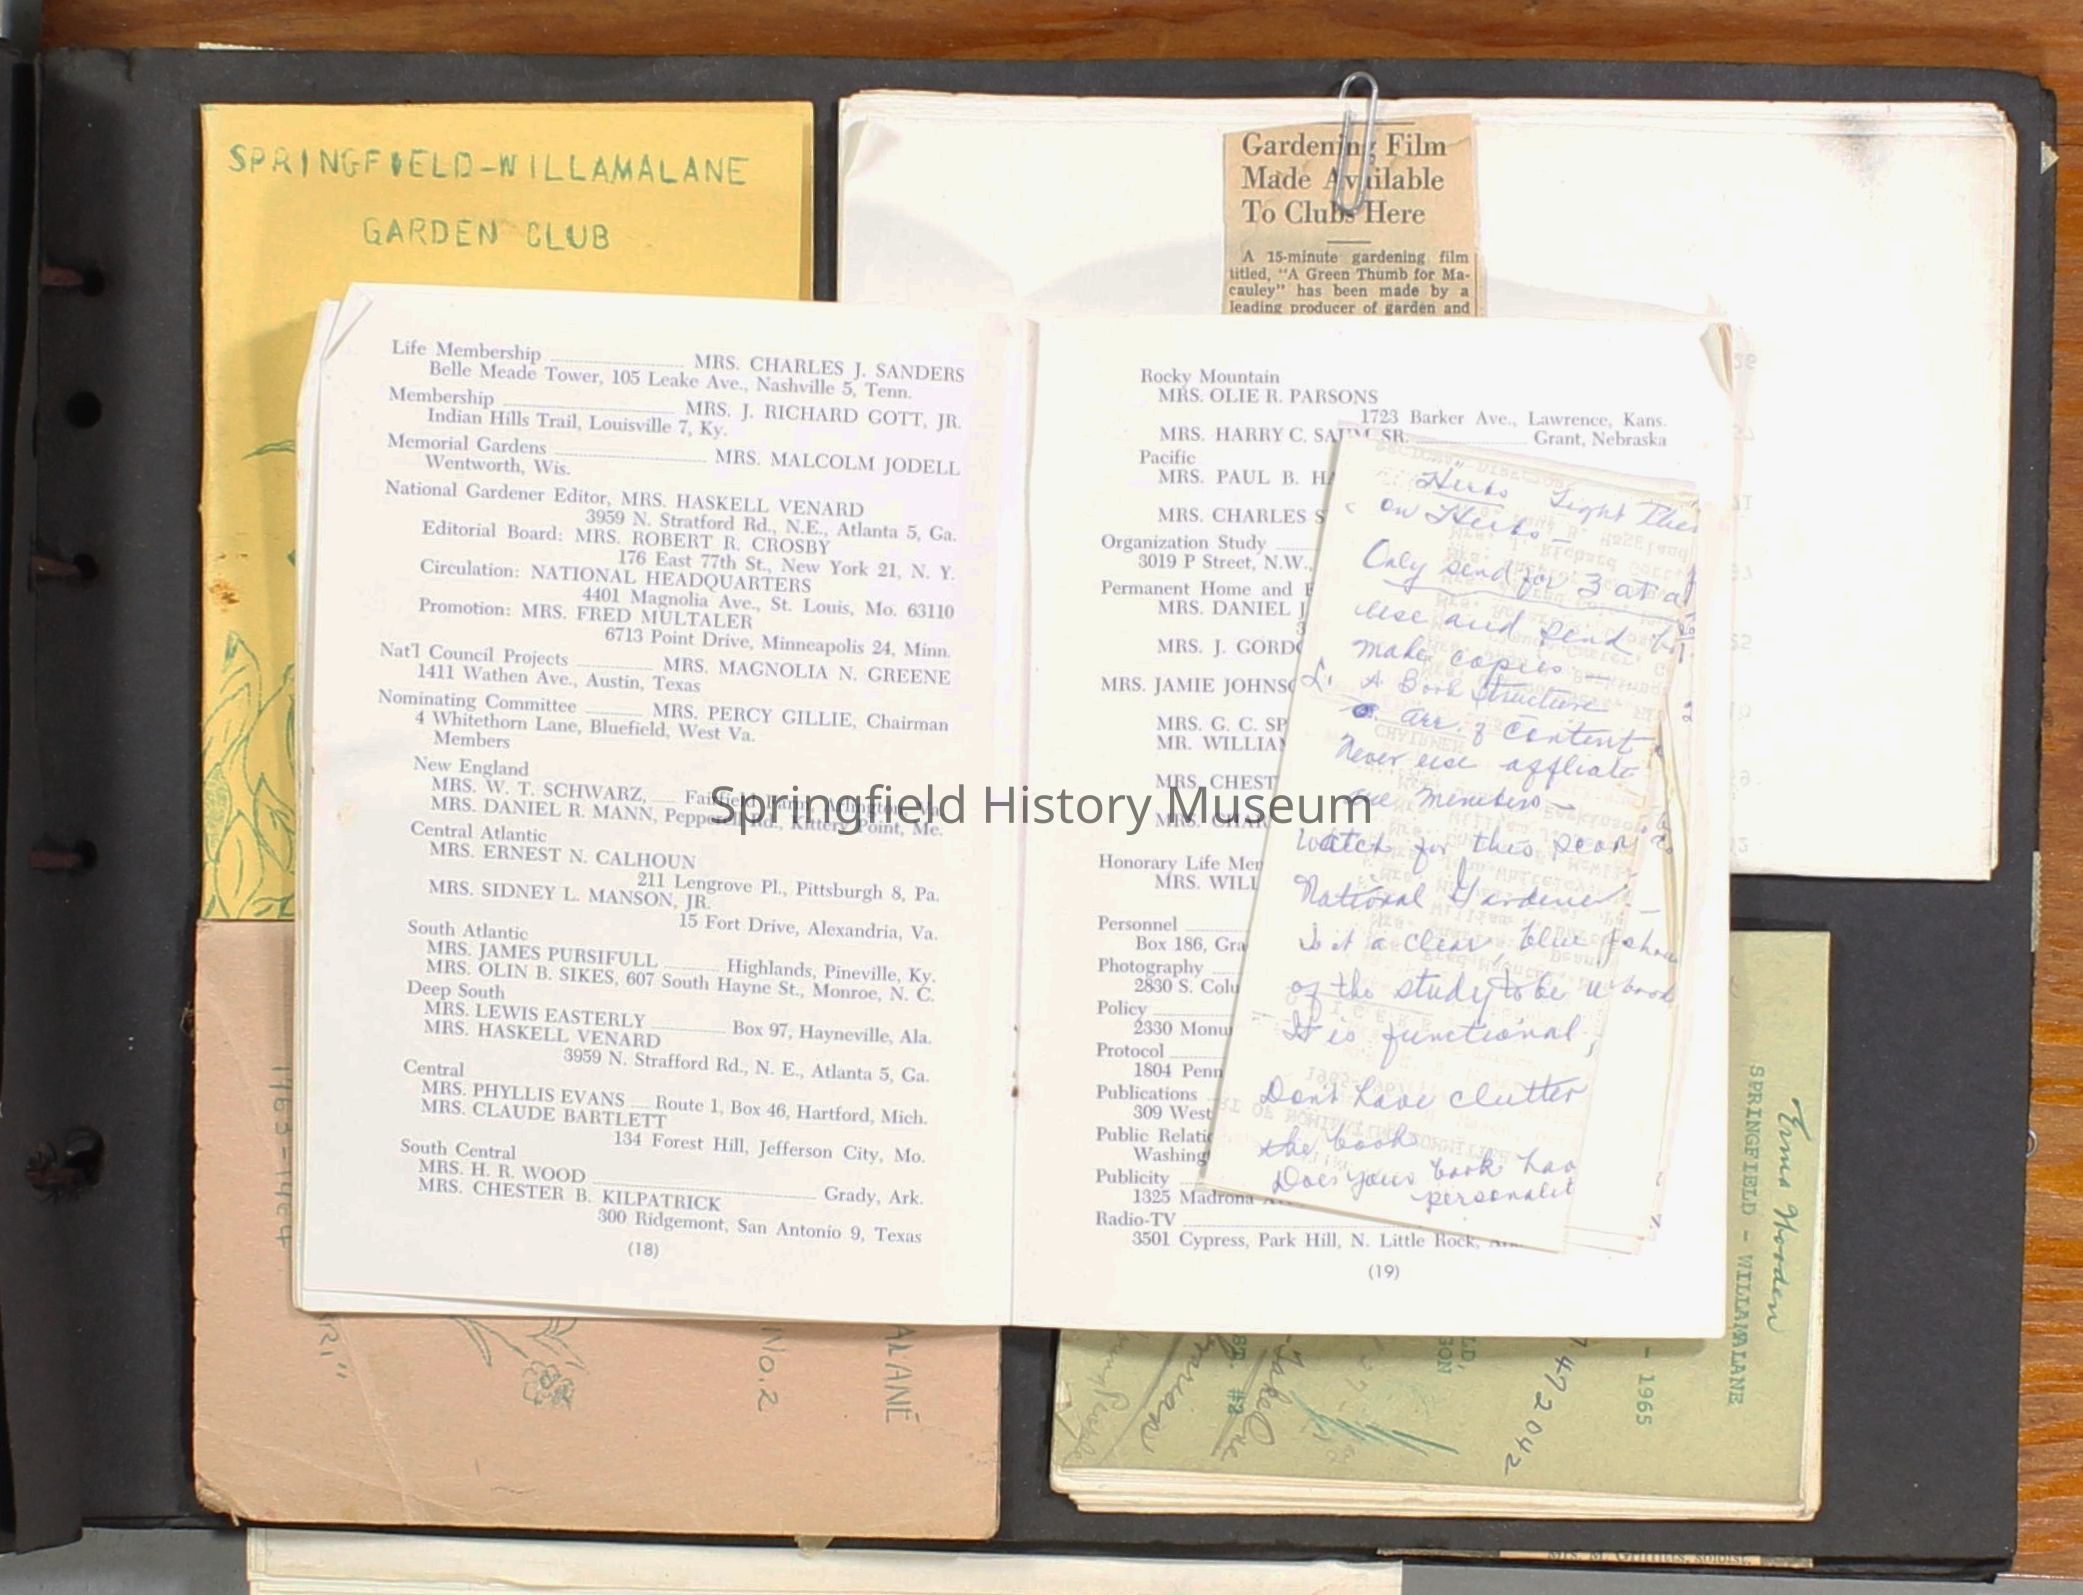 SPRINGFIELD-WILLAMALANE
GARDEN CLUB
Gardening Film
Made Available
To Clubs Here
A 15-minute gardening film
titled, "A Green Thumb for Ma-
cauley" has been made by a
leading producer of garden and
Life Membership MRS. CHARLES J. SANDERS
Belle Meade Tower, 105 Leake Ave., Nashville 5, Tenn.
Membership MRS. J. RICHARD GOTT, JR.
Indian Hills Trail, Louisville 7, Ky.
Memorial Gardens MRS. MALCOLM JODELL
Wentworth, Wis.
National Gardener Editor, MRS. HASKELL VENARD
3959 N. Stratford Rd., N.E., Atlanta 5, Ga.
Editorial Board: MRS. ROBERT R. CROSBY
176 East 77th St., New York 21, N. Y.
Circulation: NATIONAL HEADQUARTERS
4401 Magnolia Ave., St. Louis, Mo. 63110
Promotion: MRS. FRED MULTALER
6713 Point Drive, Minneapolis 24, Minn.
Nat'l Council Projects MRS. MAGNOLIA N. GREENE
1411 Wathen Ave., Austin, Texas
Nominating Committee MRS. PERCY GILLIE, Chairman
4 Whitethorn Lane, Bluefield, West Va.
Members
New England
MRS. W. T. SCHWARZ, Fairfield Farm, Arlington, Va.
MRS. DANIEL R. MANN, Pepperell Rd., Kittery Point, Me.
Central Atlantic
MRS. ERNEST N. CALHOUN
211 Lengrove Pl., Pittsburgh 8, Pa.
MRS. SIDNEY L. MANSON, JR.
15 Fort Drive, Alexandria, Va.
South Atlantic
MRS. JAMES PURSIFULL Highlands, Pineville, Ky.
MRS. OLIN B. SIKES, 607 South Hayne St., Monroe, N. C.
Deep South
MRS. LEWIS EASTERLY Box 97, Hayneville, Ala.
MRS. HASKELL VENARD
3959 N. Strafford Rd., N. E., Atlanta 5, Ga.
Central
MRS. PHYLLIS EVANS Route 1, Box 46, Hartford, Mich.
MRS. CLAUDE BARTLETT
134 Forest Hill, Jefferson City, Mo.
South Central
MRS. H. R. WOOD Grady, Ark.
MRS. CHESTER B. KILPATRICK
300 Ridgemont, San Antonio 9, Texas
(18)
Rocky Mountain
MRS. OLIE R. PARSONS
1723 Barker Ave., Lawrence, Kans.
MRS. HARRY C. SAUM, SR. Grant, Nebraska
Pacific
MRS. PAUL B. HA
MRS. CHARLES S
Organization Study
3019 P Street, N.W.,
Permanent Home and
MRS. DANIEL J
MRS. J. GORD
MRS. JAMIE JOHNS
MRS. G. C. SP
MR. WILLIA
MRS. CHEST
MRS. CHAR
Honorary Life Mem
MRS. WILL
Personnel
Box 186, Gra
Photography
2830 S. Colu
Policy
2330 Monu
Protocol
1804 Penn
Publications
309 West
Public Relatio
Washing
Publicity
1325 Madrona
Radio-TV
3501 Cypress, Park Hill, N. Little Rock,
(19)
Herbs Light
on Herbs -
Only send for 3 at a
use and send
make copies
A Book Structure
arr. of content
Never use affliate
are members -
Watch for this
National Gardener -
is it a clear, blue
of the study to be
It is functional,
Don't have clutter
the book
Does your book has
personalit
Springfield History Museum
1963-1964
No. 2
ALANE
Erma Wooden
SPRINGFIELD - WILLAMALANE
- 1965
7472042
#2
Mrs. M. Griffitts, soloist.